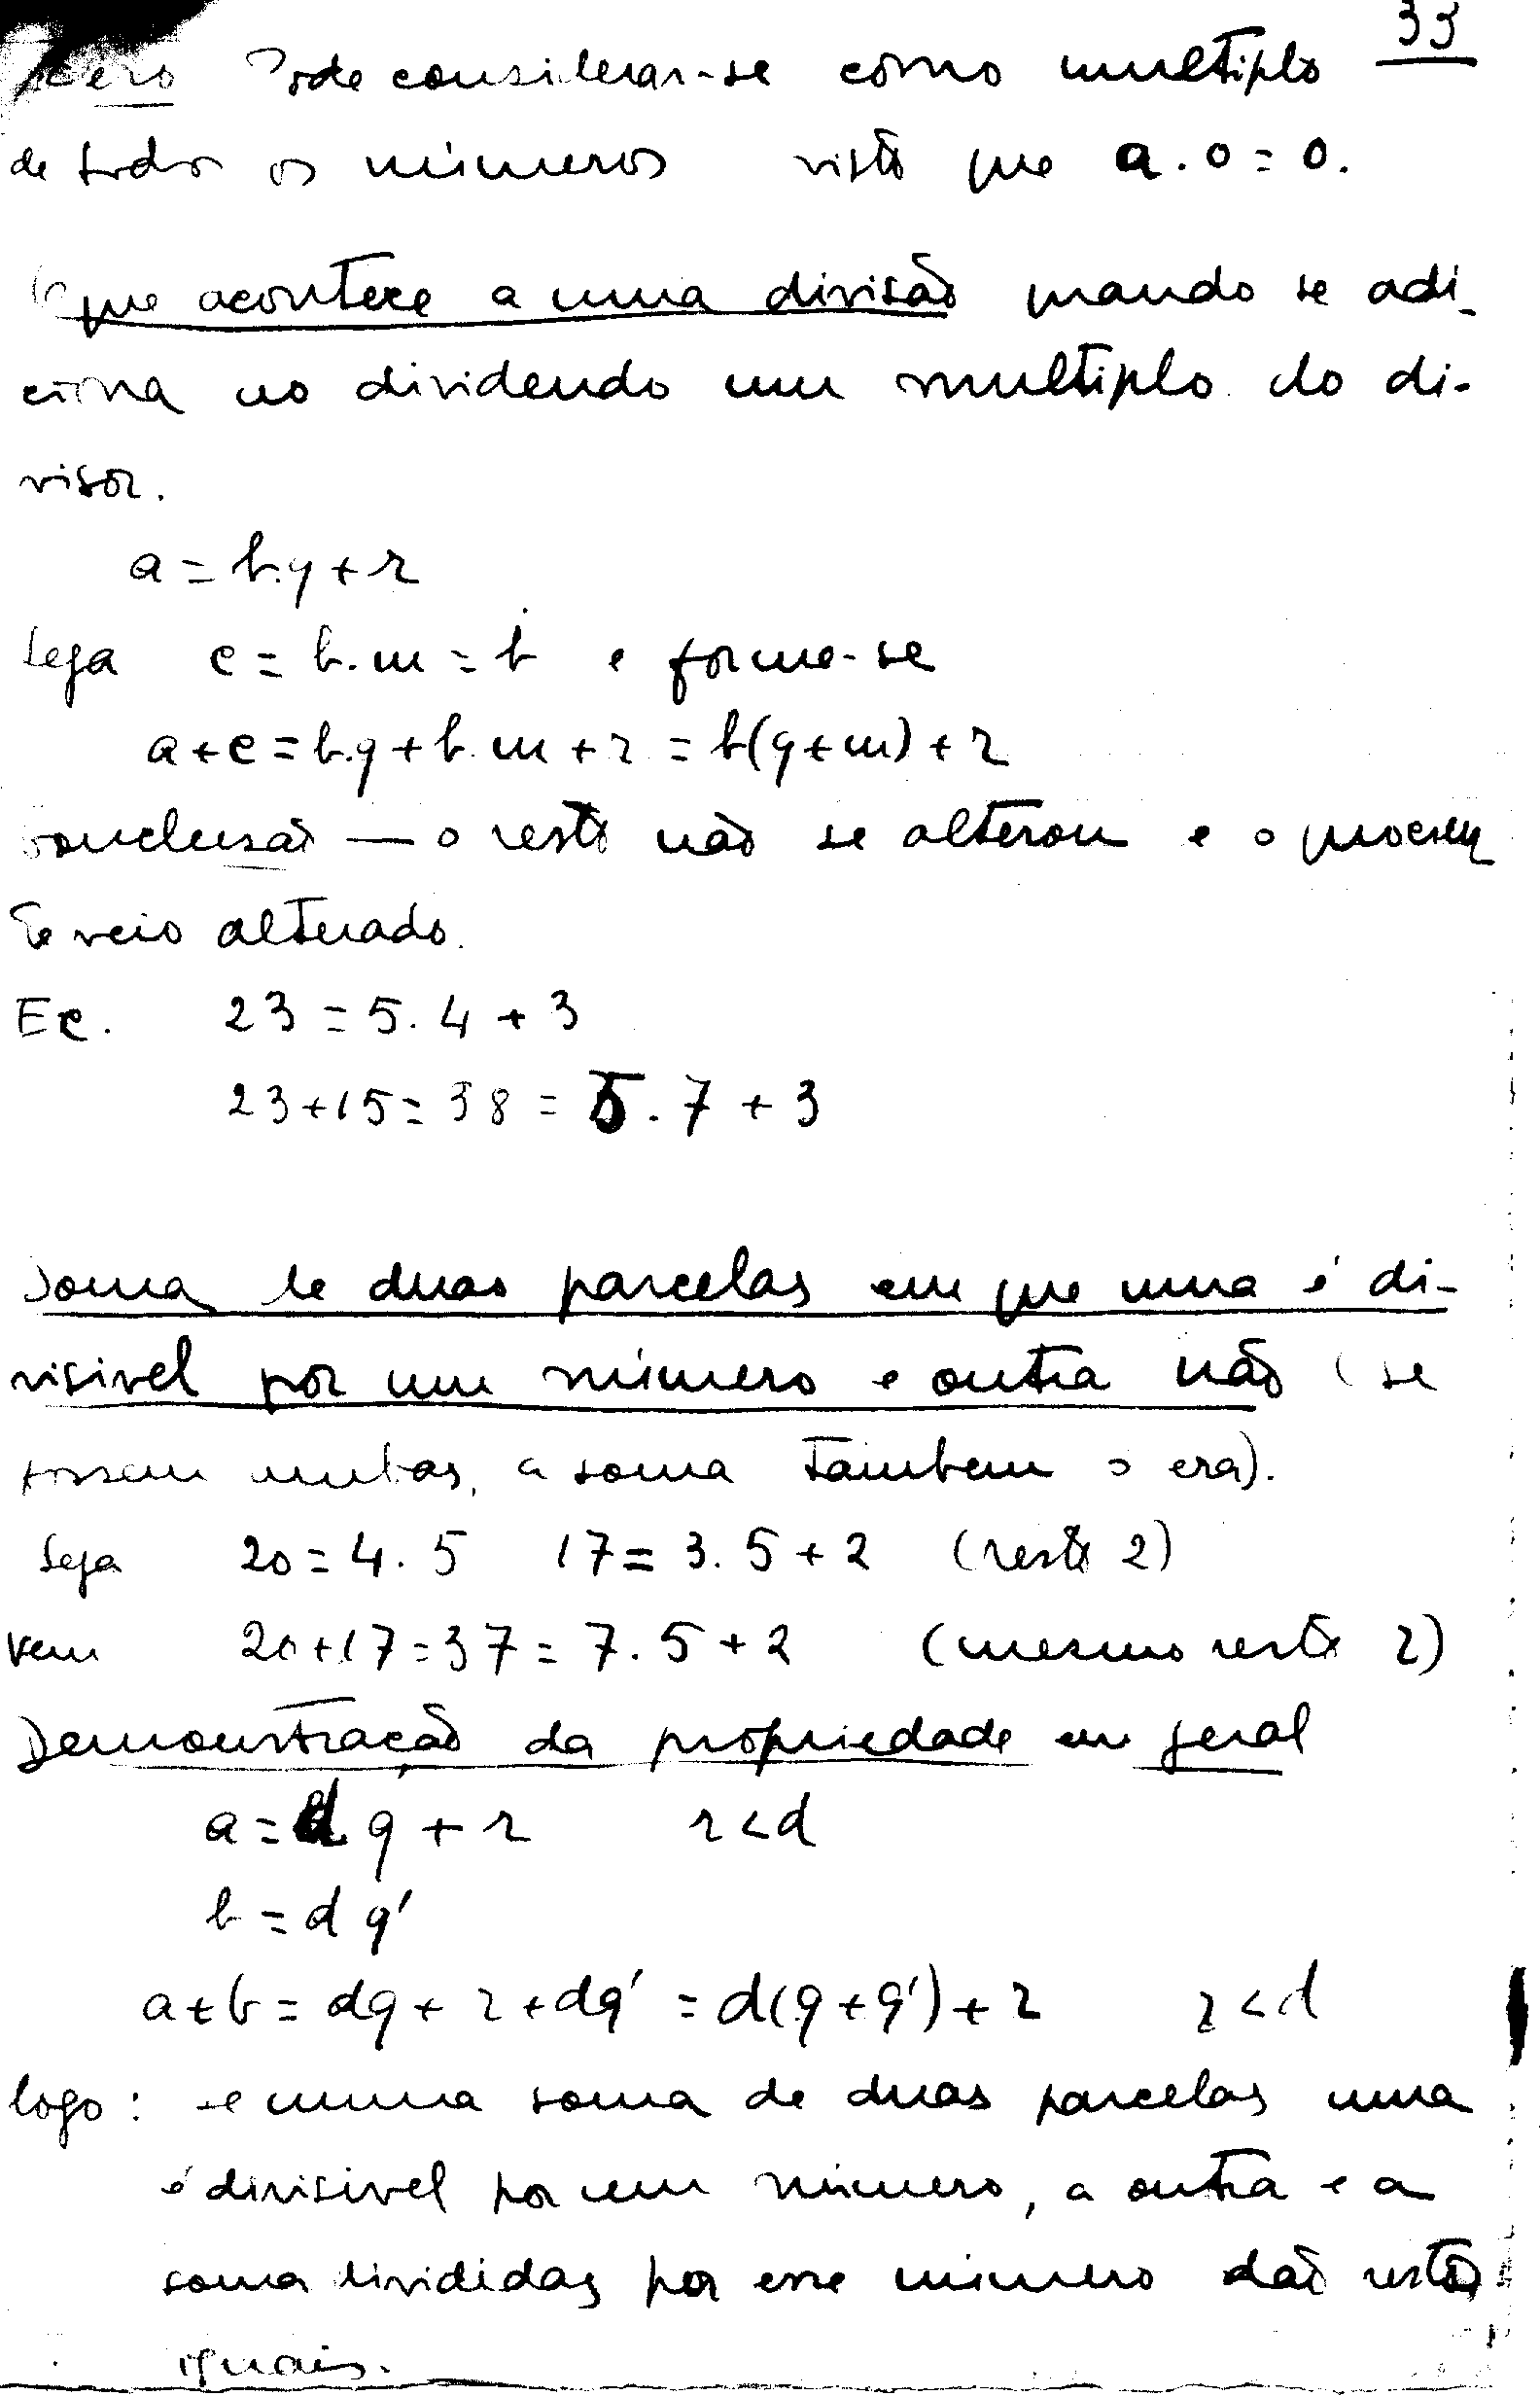 33
zero Pode considerar-se como multiplo
de todos os números visto que a . 0 = 0.
O que acontece a uma divisão quando se adi-
ciona ao dividendo um multiplo do di-
visor.
a = b.q + r
Seja c = b.m = ḃ e forme-se
a + c = b.q + b.m + r = b(q + m) + r
Conclusão — o resto não se alterou e o
te veio alterado.
Ex. 23 = 5. 4 + 3
23 + 15 = 38 = 5. 7 + 3
Soma de duas parcelas em que uma é di-
visivel por um número e outra não (se
fossem ambas, a soma tambem o era).
Seja 20 = 4. 5 17 = 3. 5 + 2 (resto 2)
vem 20 + 17 = 37 = 7. 5 + 2 (mesmo resto 2)
Demonstração da propriedade em geral
a = d q + r r < d
b = d q'
a + b = dq + r + dq' = d(q + q') + r r < d
logo: se numa soma de duas parcelas uma
é divisivel por um número, a outra e a
soma divididas por esse número dão restos
iguais.